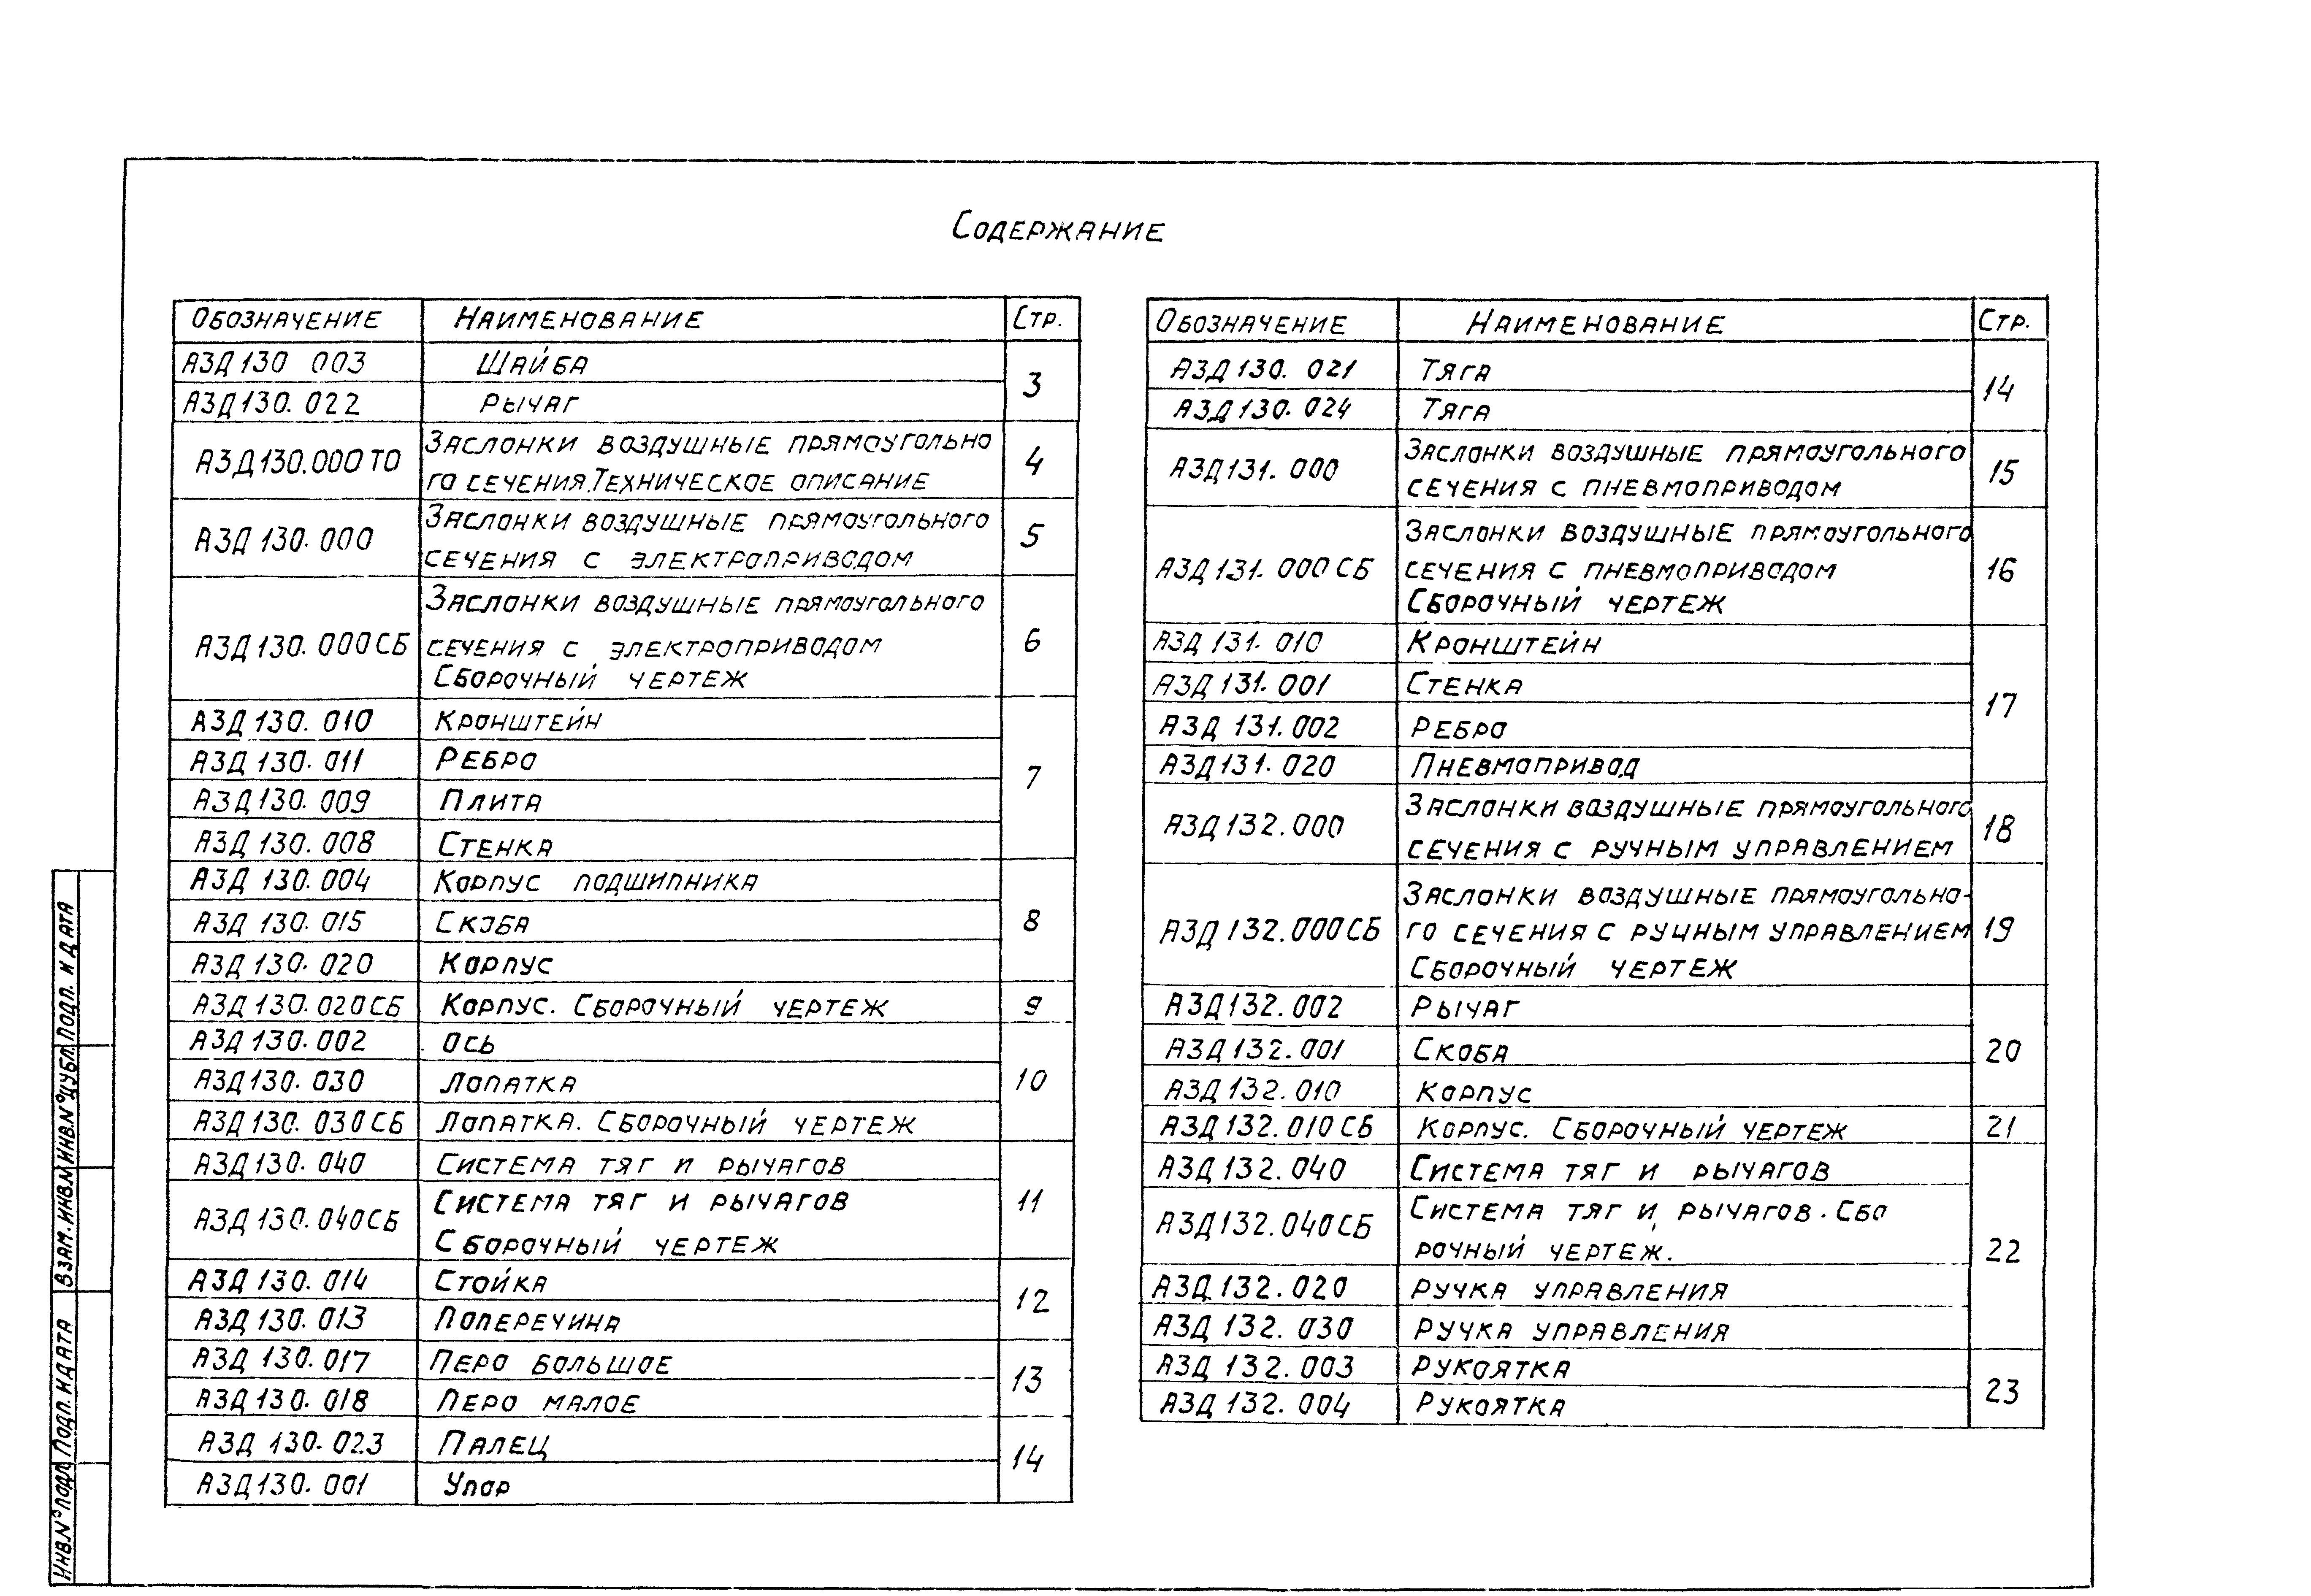 Содержание
Обозначение Наименование Стр.
АЗД 130 003 Шайба 3
АЗД 130. 022 Рычаг
АЗД 130.000 ТО Заслонки воздушные прямоугольно
го сечения.Техническое описание 4
АЗД 130.000 Заслонки воздушные прямоугольного
сечения с электроприводом 5
АЗД 130.000 СБ Заслонки воздушные прямоугольного
сечения с электроприводом 6
Сборочный чертеж
АЗД 130. 010 Кронштейн 7
АЗД 130. 011 Ребро
АЗД 130. 009 Плита
АЗД 130. 008 Стенка
АЗД 130. 004 Корпус подшипника 8
АЗД 130. 015 Скоба
АЗД 130. 020 Корпус
АЗД 130. 020 СБ Корпус. Сборочный чертеж 9
АЗД 130. 002 Ось 10
АЗД 130. 030 Лопатка
АЗД 130. 030 СБ Лопатка. Сборочный чертеж
АЗД 130. 040 Система тяг и рычагов 11
АЗД 130.040 СБ Система тяг и рычагов
Сборочный чертеж
АЗД 130. 014 Стойка 12
АЗД 130. 013 Поперечина
АЗД 130. 017 Перо большое 13
АЗД 130. 018 Перо малое
АЗД 130. 023 Палец 14
АЗД 130. 001 Упор
Обозначение Наименование Стр.
АЗД 130. 021 Тяга 14
АЗД 130. 024 Тяга
АЗД 131. 000 Заслонки воздушные прямоугольного
сечения с пневмоприводом 15
АЗД 131. 000 СБ Заслонки воздушные прямоугольного
сечения с пневмоприводом 16
Сборочный чертеж
АЗД 131. 010 Кронштейн 17
АЗД 131. 001 Стенка
АЗД 131.002 Ребро
АЗД 131. 020 Пневмопривод
АЗД 132.000 Заслонки воздушные прямоугольного
сечения с ручным управлением 18
АЗД 132.000 СБ Заслонки воздушные прямоугольно-
го сечения с ручным управлением 19
Сборочный чертеж
АЗД 132.002 Рычаг 20
АЗД 132.001 Скоба
АЗД 132. 010 Корпус
АЗД 132.010 СБ Корпус. Сборочный чертеж 21
АЗД 132.040 Система тяг и рычагов 22
АЗД 132.040 СБ Система тяг и рычагов. Сбо
рочный чертеж.
АЗД 132.020 Ручка управления
АЗД 132. 030 Ручка управления
АЗД 132.003 Рукоятка 23
АЗД 132.004 Рукоятка
Инв.№ подл. Подп. и дата Взам. инв.№ Инв.№ дубл. Подп. и дата